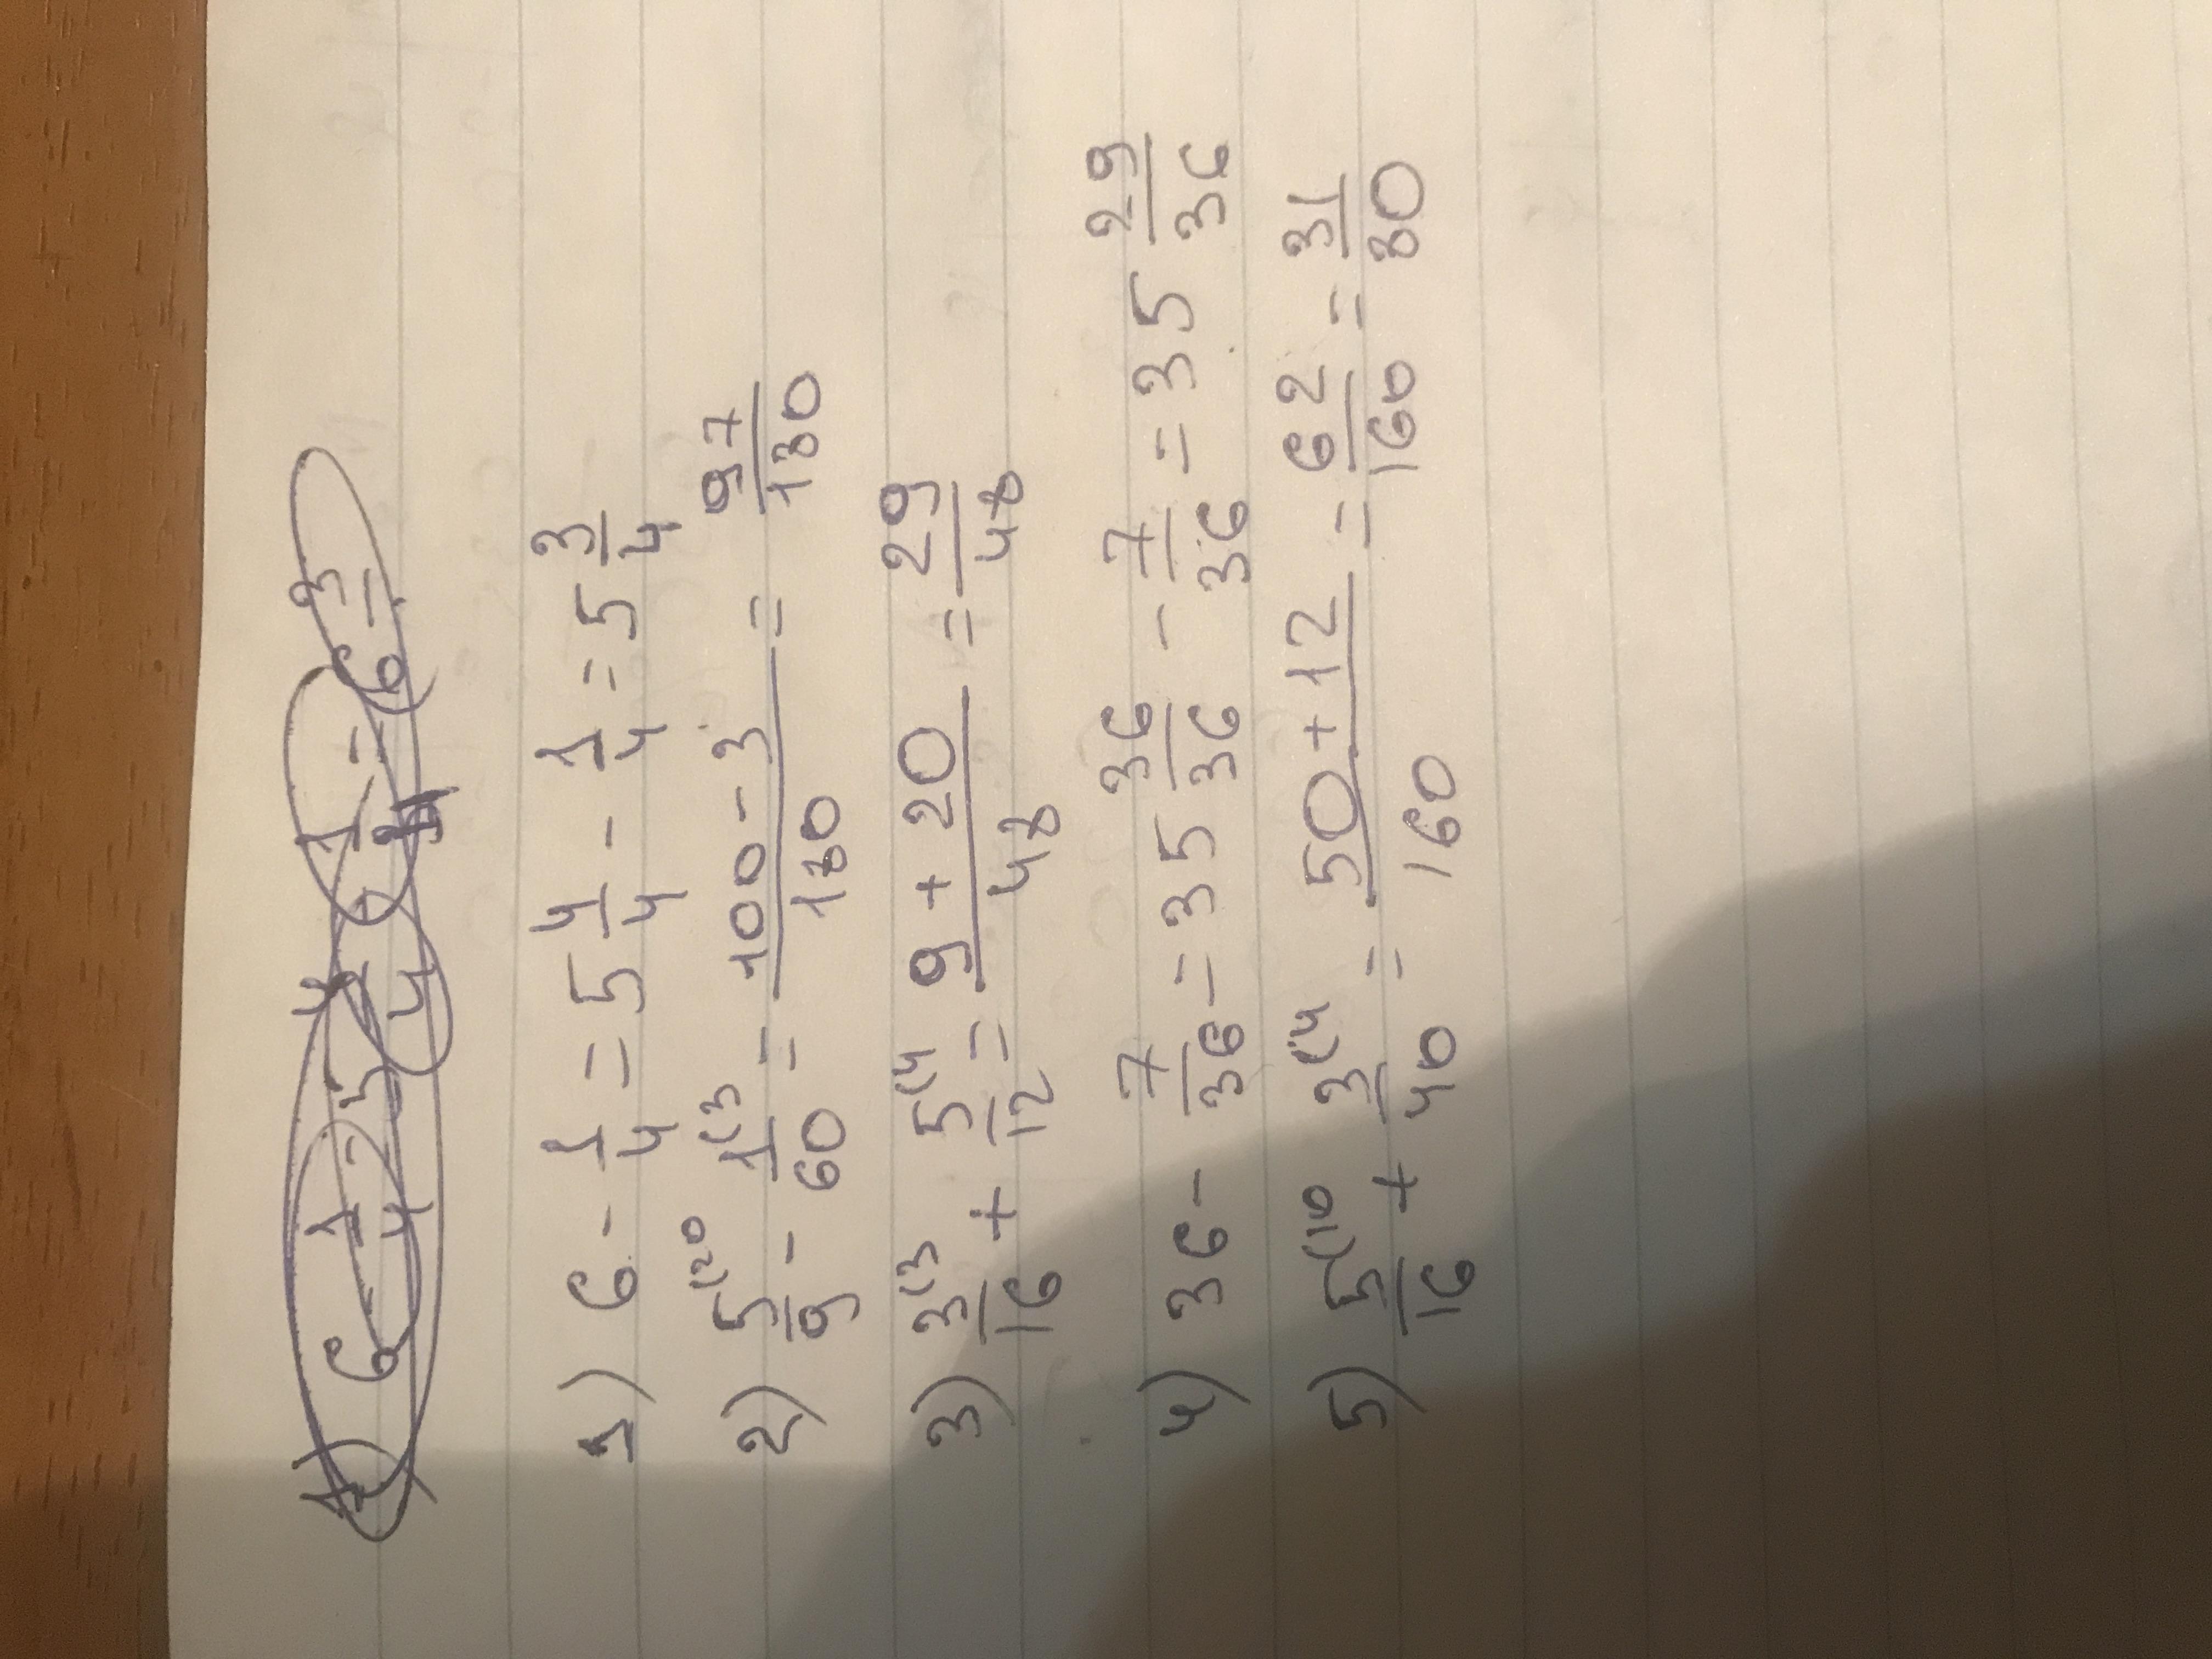 1) 6 - 1/4 = 5 4/4 - 1/4 = 5 3/4
2) 5(20/9 - 1(3/60 = 100 - 3/180 = 97/180
3) 3(3/16 + 5(4/12 = 9 + 20/48 = 29/48
4) 36 - 7/36 = 35 36/36 - 7/36 = 35 29/36
5) 5(10/16 + 3(4/40 = 50 + 12/160 = 62/160 = 31/80